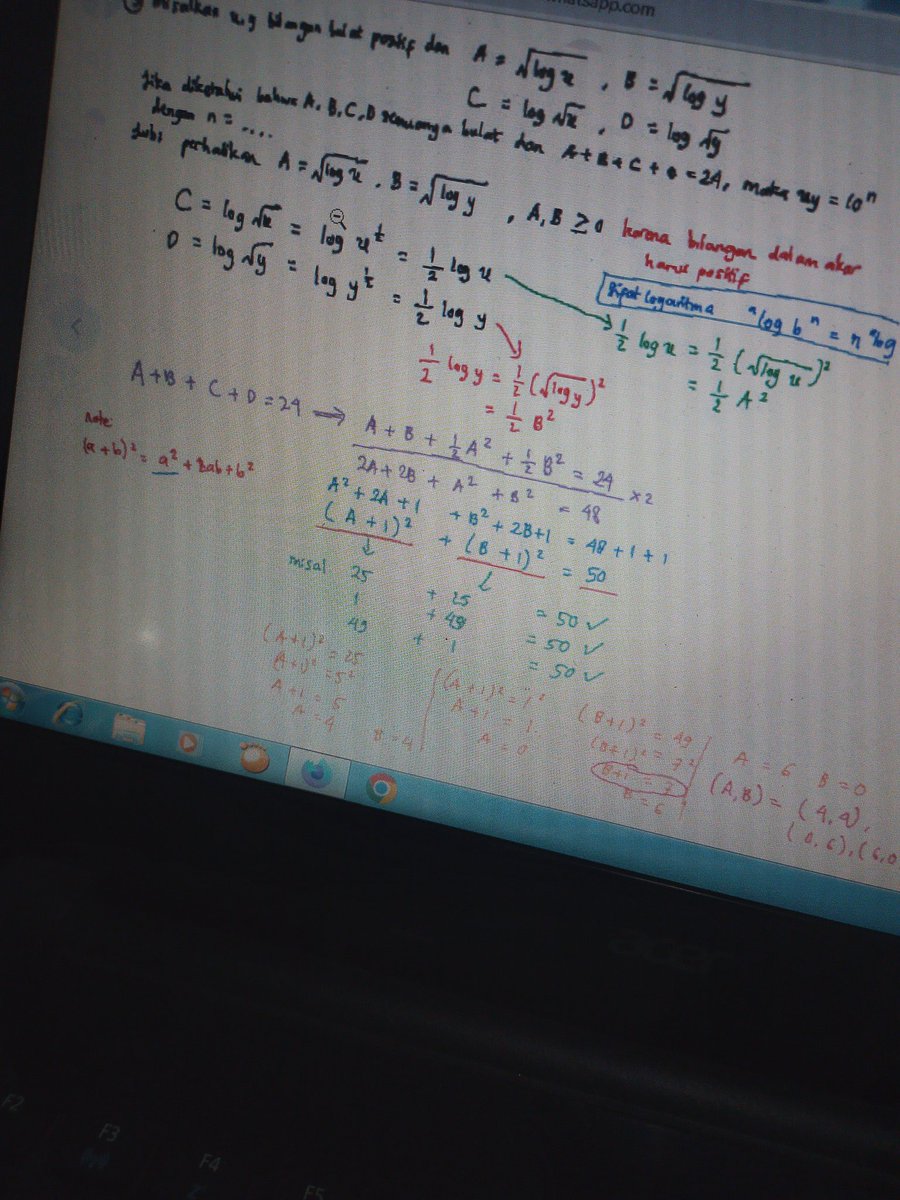 whatsapp.com
misalkan x,y bilangan bulat positif dan A = √log x , B = √log y
C = log √x , D = log √y
Jika diketahui bahwa A, B, C, D semuanya bulat dan A+B+C+D = 24, maka xy = 10ⁿ
dengan n = ....
perhatikan A = √log x . B = √log y , A,B ≥ 0 karena bilangan dalam akar
harus positif
C = log √x = log x^½ = ½ log x
D = log √y = log y^½ = ½ log y
Sifat Logaritma ᵃlog bⁿ = n ᵃlog
½ log x = ½ (√log x)²
= ½ A²
½ log y = ½ (√log y)²
= ½ B²
A+B+C+D = 24 → A + B + ½A² + ½B² = 24 ×2
2A + 2B + A² + B² = 48
note:
(a+b)² = a² + 2ab + b²
A² + 2A + 1 + B² + 2B+1 = 48 + 1 + 1
(A+1)² + (B+1)² = 50
misal 25 + 25 = 50 ✓
1 + 49 = 50 ✓
49 + 1 = 50 ✓
(A+1)² = 25
(A+1)² = 5²
A+1 = 5
A = 4 B = 4
(A+1)² = 1²
A+1 = 1
A = 0
(B+1)² = 49
(B+1)² = 7²
B+1 = 7
B = 6
A = 6 B = 0
(A,B) = (4,4),
(0,6),(6,0
acer
F2
F3
F4
F5